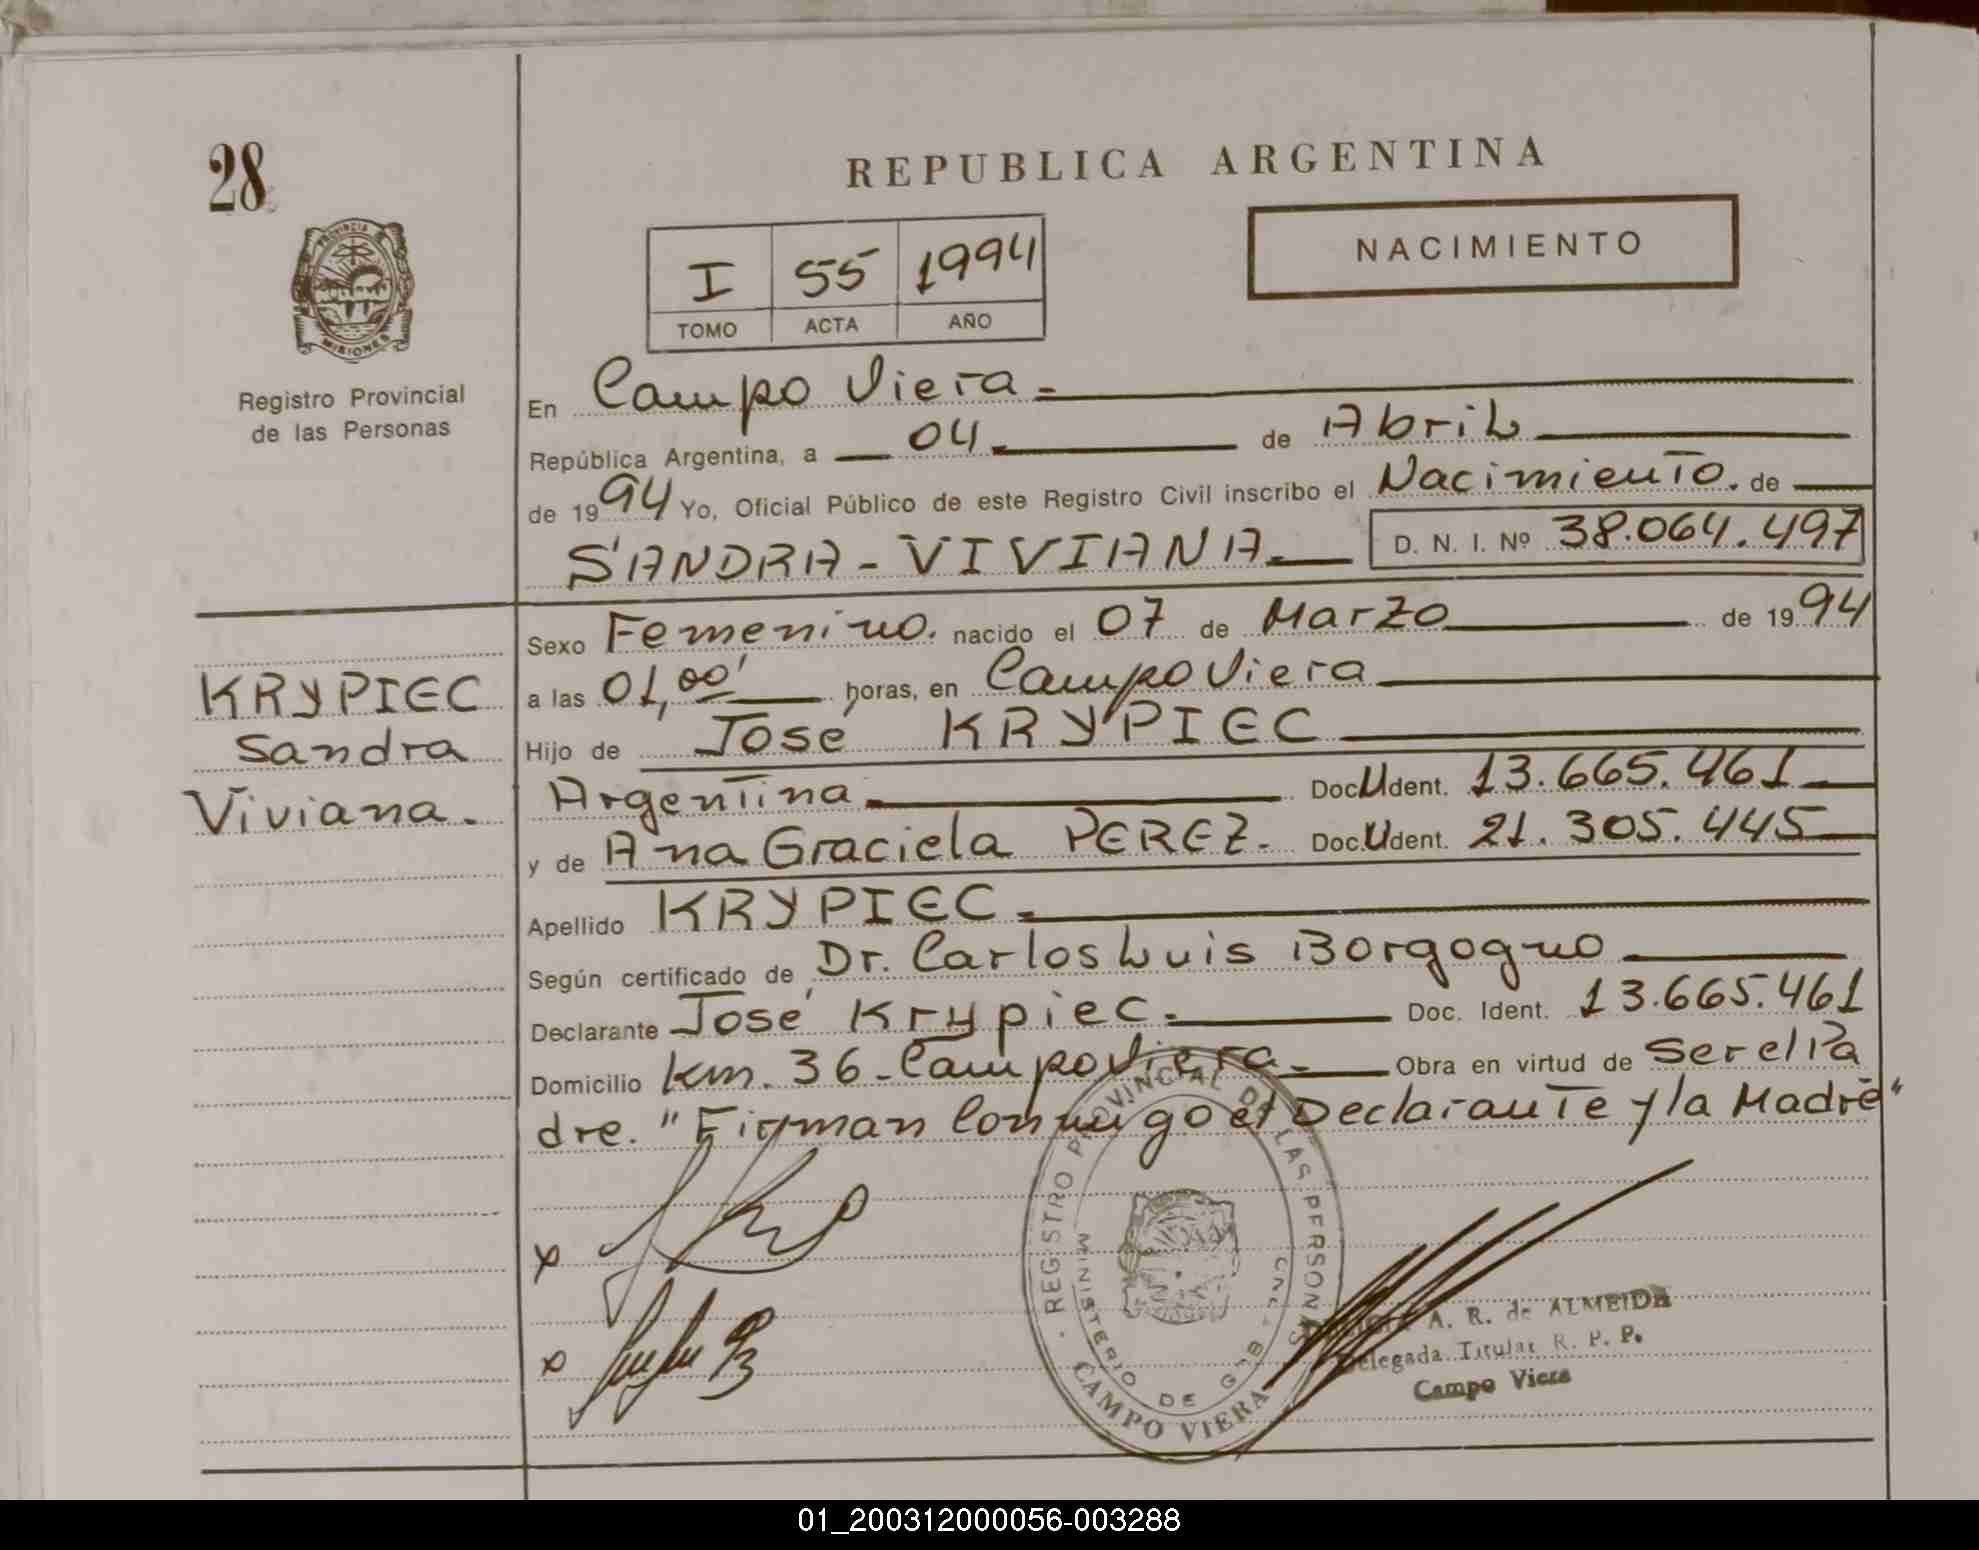 28
REPUBLICA ARGENTINA
NACIMIENTO
I 55 1994
TOMO ACTA AÑO
PROVINCIA
MISIONES
Registro Provincial
de las Personas
En Campo Viera.-
República Argentina, a 04 de Abril
de 1994 Yo, Oficial Público de este Registro Civil inscribo el Nacimiento. de
SANDRA - VIVIANA D. N. I. Nº 38.064.497
Sexo Femenino. nacido el 07 de Marzo de 1994
KRYPIEC
Sandra
Viviana.
a las 01,00' horas, en Campo Viera
Hijo de José KRYPIEC
Argentina Doc. Ident. 13.665.461
y de Ana Graciela PEREZ.- Doc. Ident. 21.305.445
Apellido KRYPIEC.
Según certificado de Dr. Carlos Luis Borgogno
Declarante José Krypiec. Doc. Ident. 13.665.461
Domicilio Km. 36 - Campo Viera.- Obra en virtud de Ser el Pa
dre. "Firman conmigo el Declarante y la Madre"
x
x
REGISTRO PROVINCIAL DE LAS PERSONAS
MINISTERIO DE GOB
CAMPO VIERA
A. R. de ALMEIDA
Delegada Titular R. P. P.
Campo Viera
01_200312000056-003288